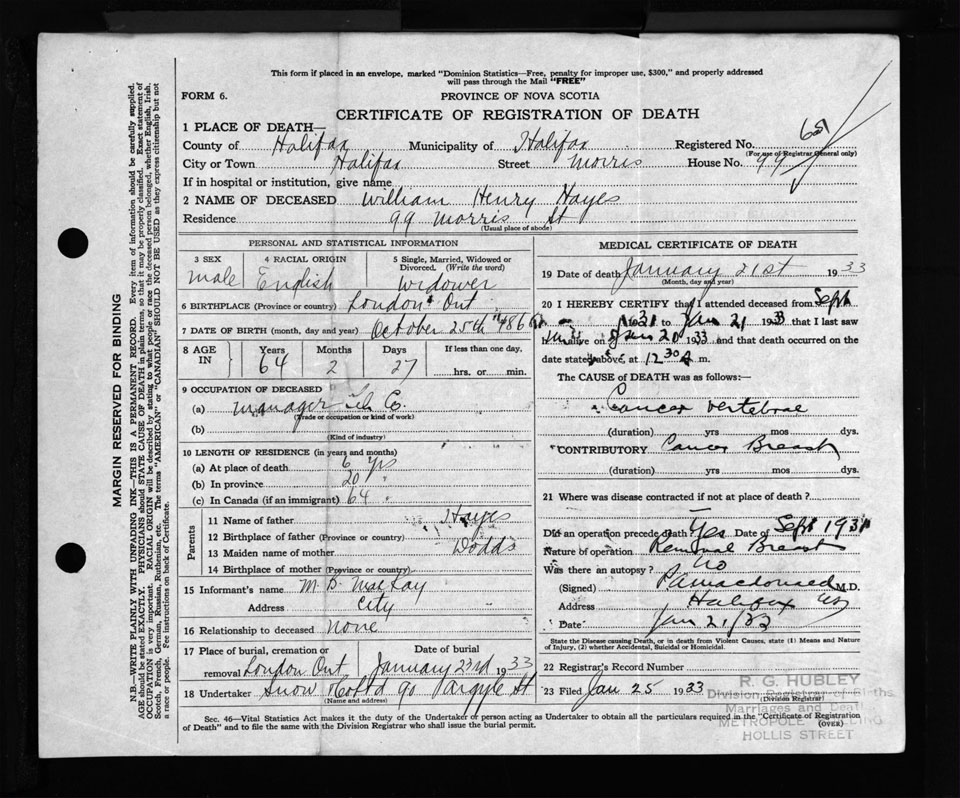 This form if placed in an envelope, marked "Dominion Statistics—Free, penalty for improper use, $300," and properly addressed
will pass through the Mail "FREE"
FORM 6.
PROVINCE OF NOVA SCOTIA
CERTIFICATE OF REGISTRATION OF DEATH
1 PLACE OF DEATH—
County of Halifax Municipality of Halifax Registered No. 651
(For use of Registrar General only)
City or Town Halifax Street Morris House No. 99
If in hospital or institution, give name
2 NAME OF DECEASED William Henry Hayes
Residence 99 Morris St
(Usual place of abode)
PERSONAL AND STATISTICAL INFORMATION
3 SEX 4 RACIAL ORIGIN 5 Single, Married, Widowed or
Divorced. (Write the word)
male English widower
6 BIRTHPLACE (Province or country) London Ont
7 DATE OF BIRTH (month, day and year) October 25th
8 AGE IN Years Months Days If less than one day,
64 2 27 hrs. or min.
9 OCCUPATION OF DECEASED
(a) manager
(Trade or occupation or kind of work)
(b)
(Kind of industry)
10 LENGTH OF RESIDENCE (in years and months)
(a) At place of death 6 yrs
(b) In province 20 "
(c) In Canada (if an immigrant) 64 "
Parents
11 Name of father Hayes
12 Birthplace of father (Province or country)
13 Maiden name of mother Dodds
14 Birthplace of mother (Province or country)
15 Informant's name M. B. MacKay
Address City
16 Relationship to deceased none
17 Place of burial, cremation or Date of burial
removal London Ont January 23rd 1933
18 Undertaker Snow & Co Ltd 90 Argyle St
(Name and address)
MEDICAL CERTIFICATE OF DEATH
19 Date of death January 21st 1933
(Month, day and year)
20 I HEREBY CERTIFY that I attended deceased from Sept
1931 to Jan 21 1933 that I last saw
him alive on Jan 20 1933 and that death occurred on the
date stated above, at 12 30 A m.
The CAUSE OF DEATH was as follows:—
Cancer vertebrae
(duration) yrs mos dys.
CONTRIBUTORY Cancer Breast
(duration) yrs mos dys.
21 Where was disease contracted if not at place of death?
—
Did an operation precede death? Yes Date of Sept 1931
Nature of operation Removal Breast
Was there an autopsy? no
(Signed) M.D.
Address Halifax NS
Date Jan 21/33
State the Disease causing Death, or in death from Violent Causes, state (1) Means and Nature
of Injury, (2) whether Accidental, Suicidal or Homicidal.
22 Registrar's Record Number
23 Filed Jan 25 1933
(Division Registrar)
R. G. HUBLEY
Division Registrar of Births
Marriages and Deaths
METROPOLE BUILDING
HOLLIS STREET
Sec. 46—Vital Statistics Act makes it the duty of the Undertaker or person acting as Undertaker to obtain all the particulars required in the "Certificate of Registration
of Death" and to file the same with the Division Registrar who shall issue the burial permit.
(OVER)
MARGIN RESERVED FOR BINDING
N.B.—WRITE PLAINLY WITH UNFADING INK—THIS IS A PERMANENT RECORD. Every item of information should be carefully supplied.
AGE should be stated EXACTLY. PHYSICIANS should STATE CAUSE OF DEATH in plain terms so that it may be properly classified. Exact statement of
OCCUPATION is very important. RACIAL ORIGIN will be described by stating to what people or race the deceased person belonged, whether English, Irish,
Scotch, French, German, Russian, Ruthenian, etc. The terms "AMERICAN" or "CANADIAN" SHOULD NOT BE USED as they express citizenship but not
a race or people. Fee instructions on back of Certificate.